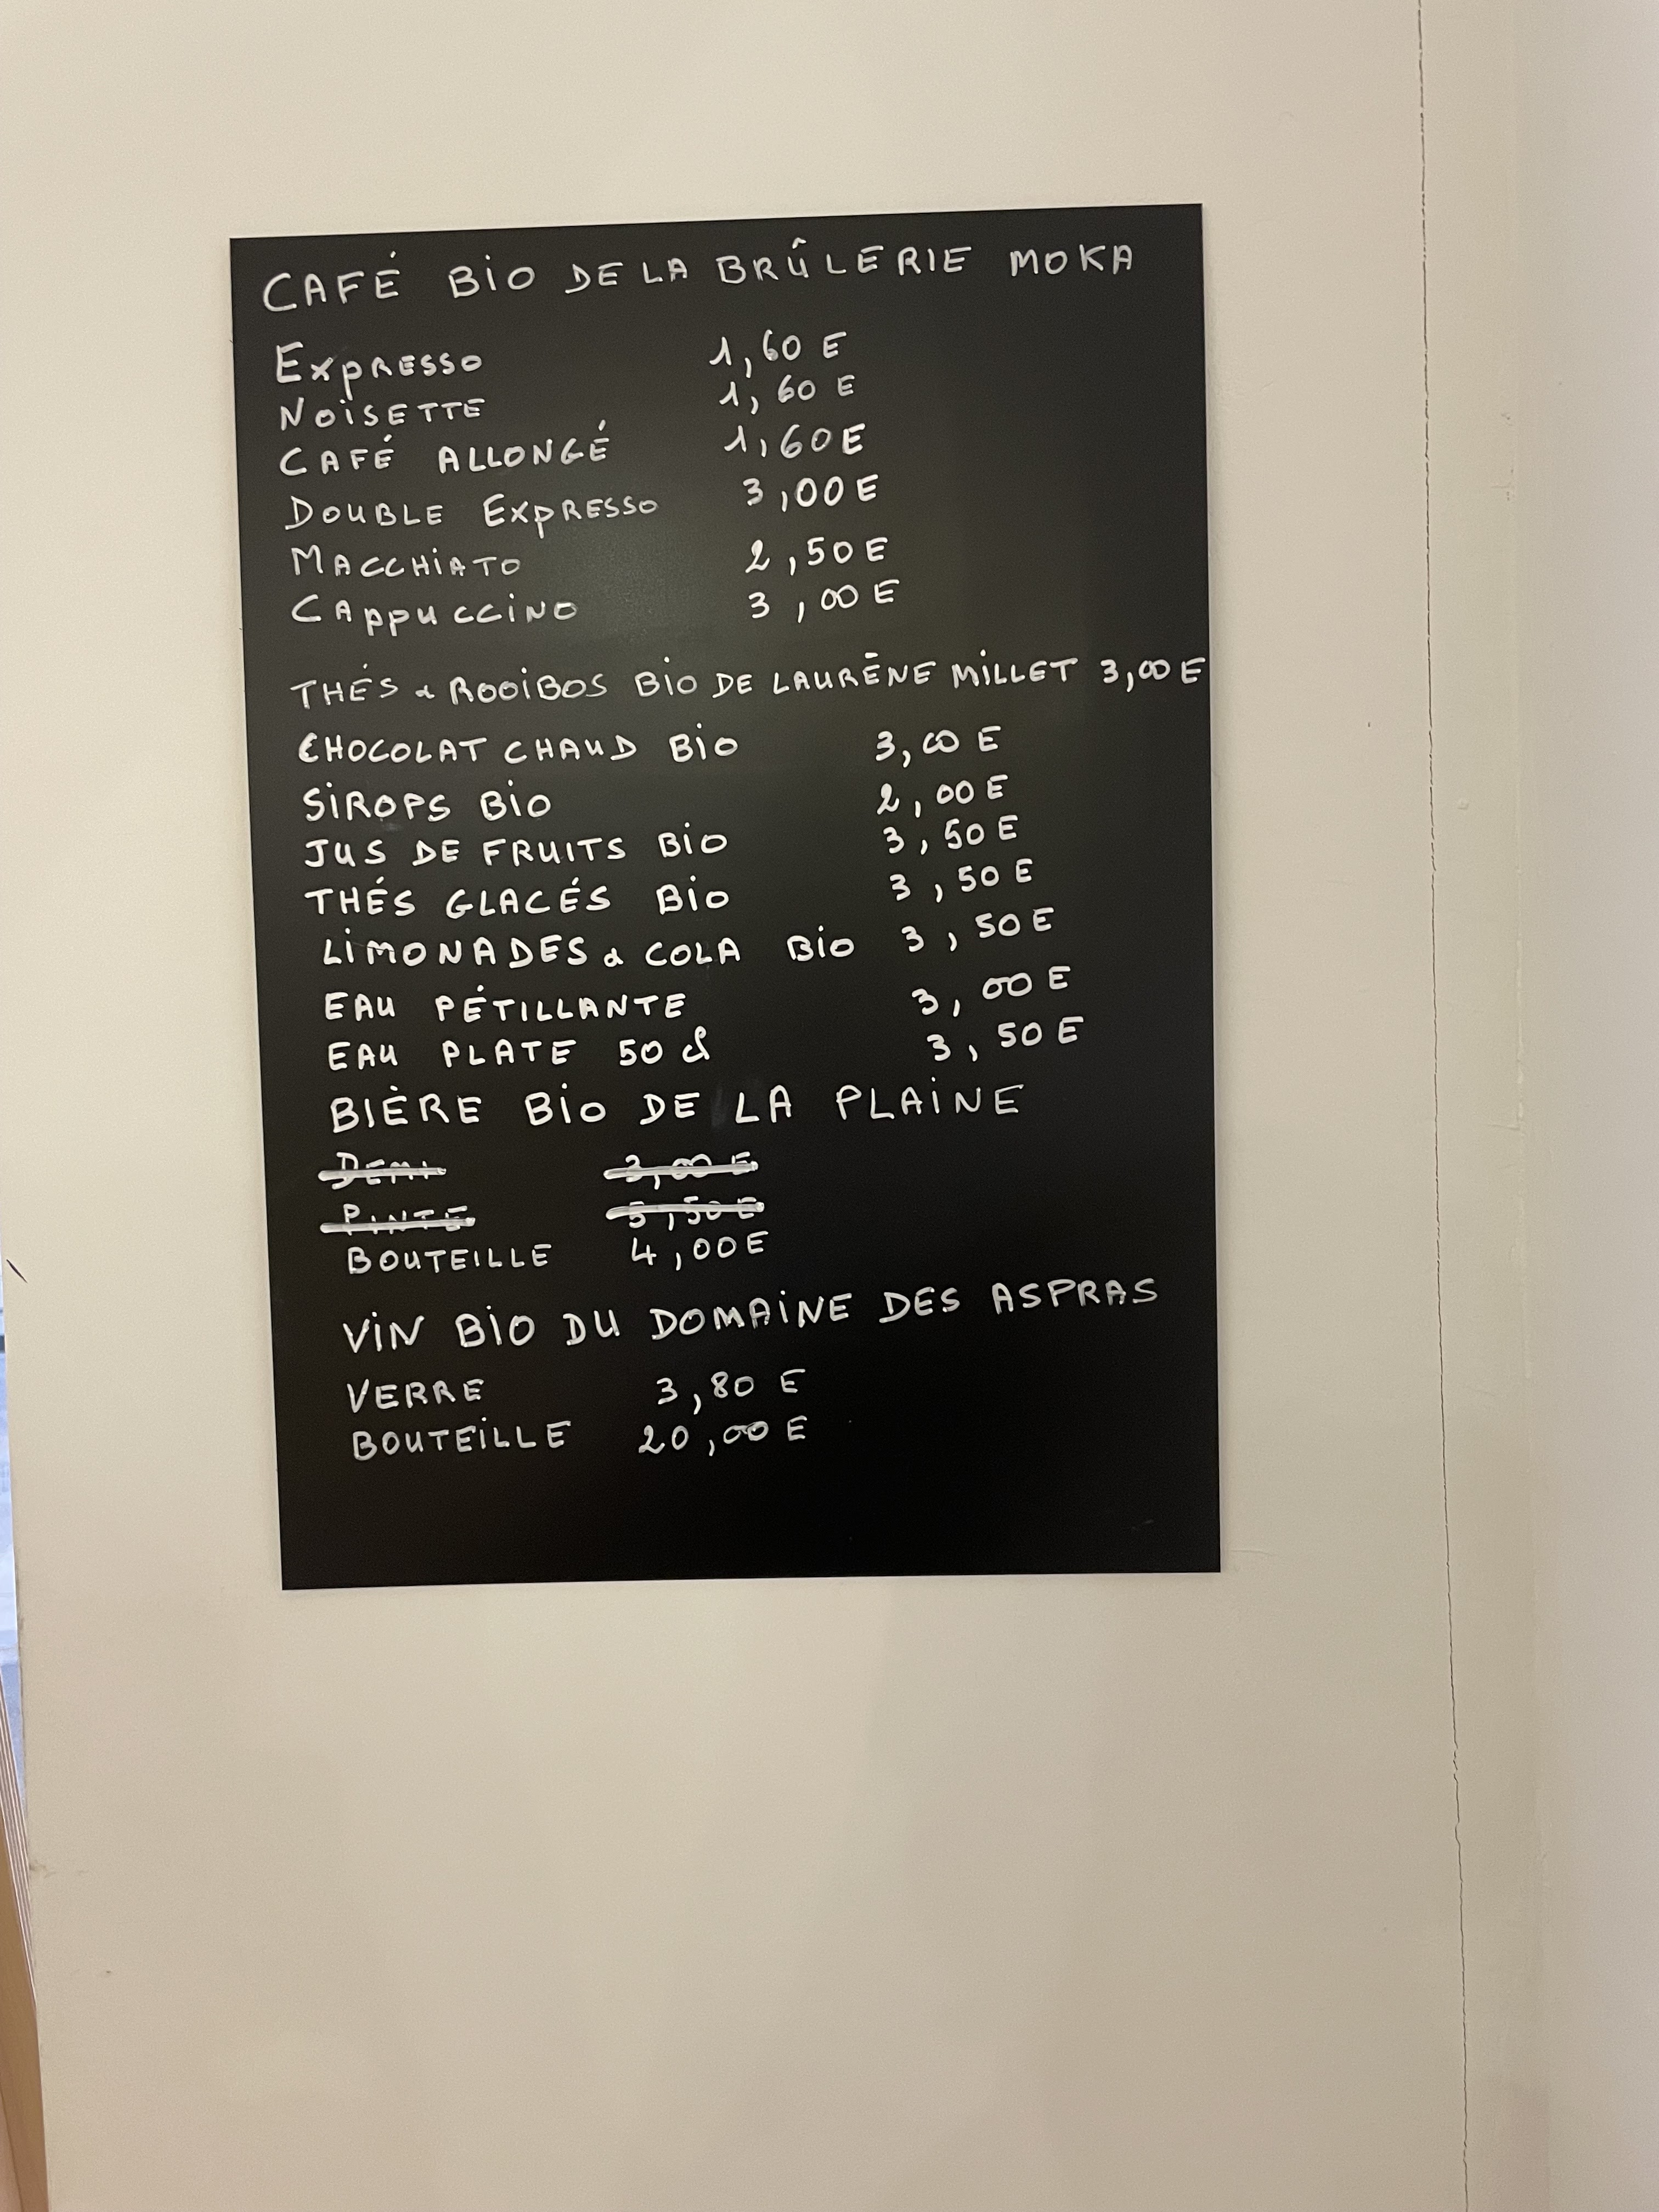 CAFÉ BIO DE LA BRÛLERIE MOKA
EXPRESSO 1,60 E
NOISETTE 1,60 E
CAFÉ ALLONGÉ 1,60 E
DOUBLE EXPRESSO 3,00 E
MACCHIATO 2,50 E
CAPPUCCINO 3,00 E
THÉS & ROOIBOS BIO DE LAURÈNE MILLET 3,00 E
CHOCOLAT CHAUD BIO 3,00 E
SIROPS BIO 2,00 E
JUS DE FRUITS BIO 3,50 E
THÉS GLACÉS BIO 3,50 E
LIMONADES & COLA BIO 3,50 E
EAU PÉTILLANTE 3,00 E
EAU PLATE 50 cl 3,50 E
BIÈRE BIO DE LA PLAINE
DEMI 3,00 E
PINTE 5,50 E
BOUTEILLE 4,00 E
VIN BIO DU DOMAINE DES ASPRAS
VERRE 3,80 E
BOUTEILLE 20,00 E